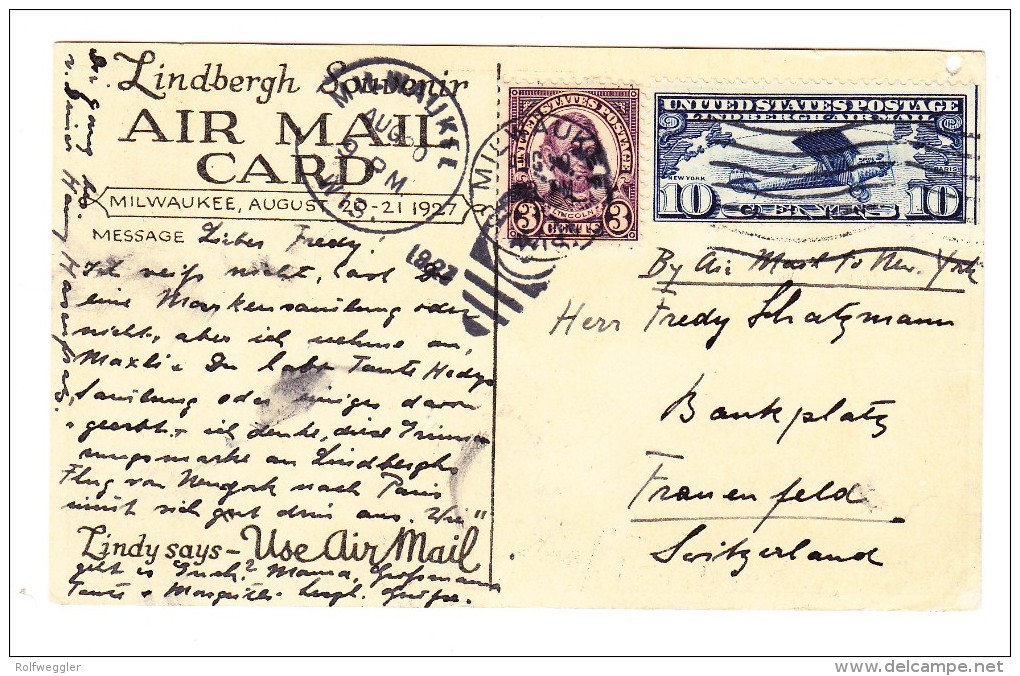 Lindbergh Souvenir
AIR MAIL
CARD
MILWAUKEE, AUGUST 20-21 1927
MILWAUKEE
AUG 20
PM
WIS.
1927
UNITED STATES POSTAGE
LINCOLN
3 CENTS 3
UNITED STATES POSTAGE
LINDBERGH AIR MAIL
NEW YORK
PARIS
10 CENTS 10
MESSAGE Lieber Fredy!
Ich weiss nicht, ob Du
eine Markensammlung oder
nicht, aber ich nehme an,
Maxli & Du habe Tante Hedys
Samlung oder einiges davon
geerbt & ich denke, diese Erinne
rungsmarke an Lindberghs
Flug von Newyork nach Paris
nimt sich gut drin aus. Wie
Lindy says - Use Air Mail
geht es Euch? Mama, Grossmama
Tante & herzl. Grüsse.
By Air Mail to New York
Herr Fredy Schatzmann
Bankplatz
Frauenfeld
Switzerland
Rolfweggler
www.delcampe.net